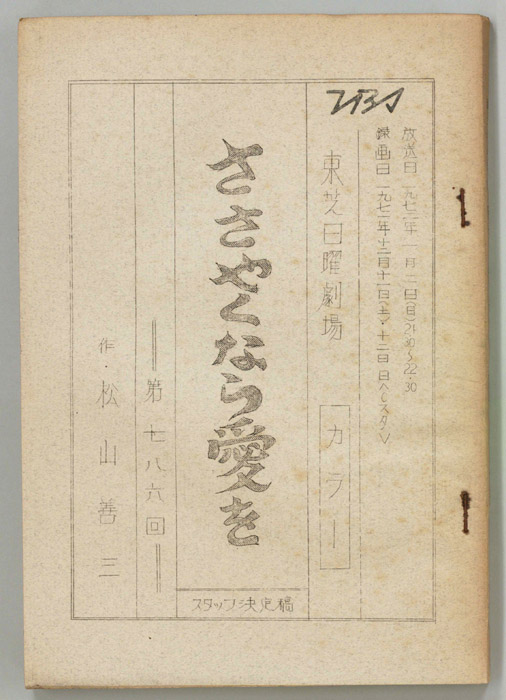 放送日 一九七二年 月二日(日)21.30〜22.30
録画日 一九七一年十二月十一日(土)・十二日 日 スタ〉
TBS
東芝日曜劇場 カラー
ささやくなら愛を
スタッフ決定稿
第七八六回
作・松山善三